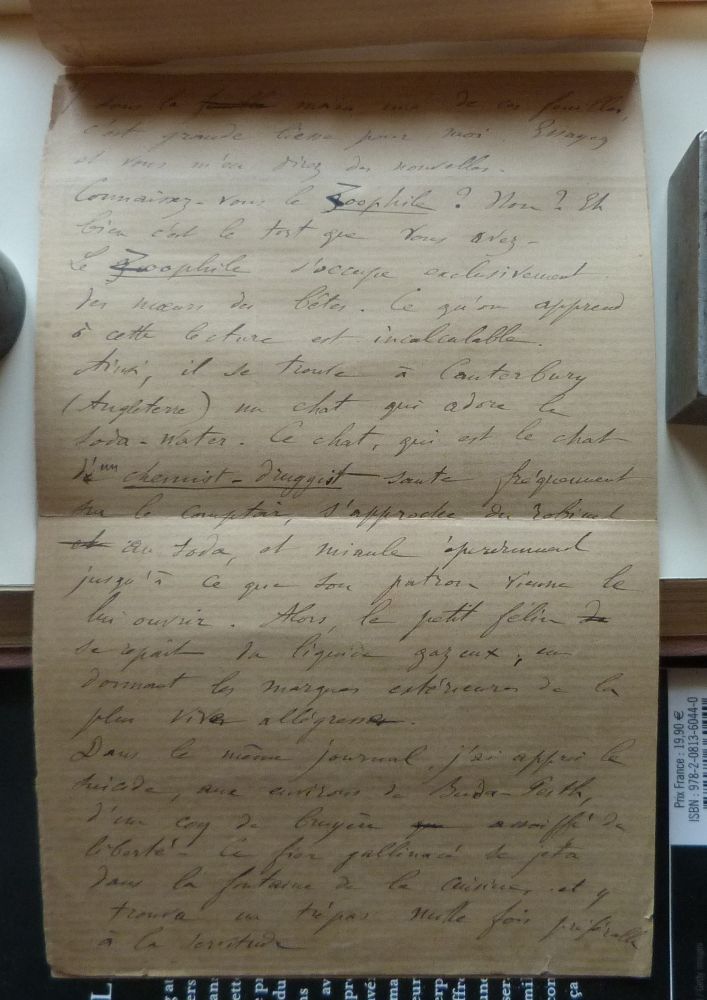 sous la main une de ces feuilles,
c'est grande liesse pour moi. Essayez
et vous m'en direz des nouvelles.
Connaissez-vous le Zoophile ? Non ? Eh
bien c'est le tort que vous avez.
Le Zoophile s'occupe exclusivement
des mœurs des bêtes. Ce qu'on apprend
à cette lecture est incalculable.
Ainsi, il se trouve à Canterbury
(Angleterre) un chat qui adore le
soda-water. Ce chat, qui est le chat
d'un chemist-druggist saute fréquemment
sur le comptoir, s'approche du robinet
au soda, et miaule éperdument
jusqu'à ce que son patron vienne le
lui ouvrir. Alors, le petit félin
se repaît du liquide gazeux, en
donnant les marques extérieures de la
plus vive allégresse.
Dans le même journal j'ai appris le
suicide, aux environs de Buda-Pesth,
d'un coq de bruyère assoiffé de
liberté. Ce fier gallinacé se jeta
dans la fontaine de la cuisine et y
trouva un trépas mille fois préférable
à la servitude
Prix France : 19,90 €
ISBN : 978-2-0813-6044-0